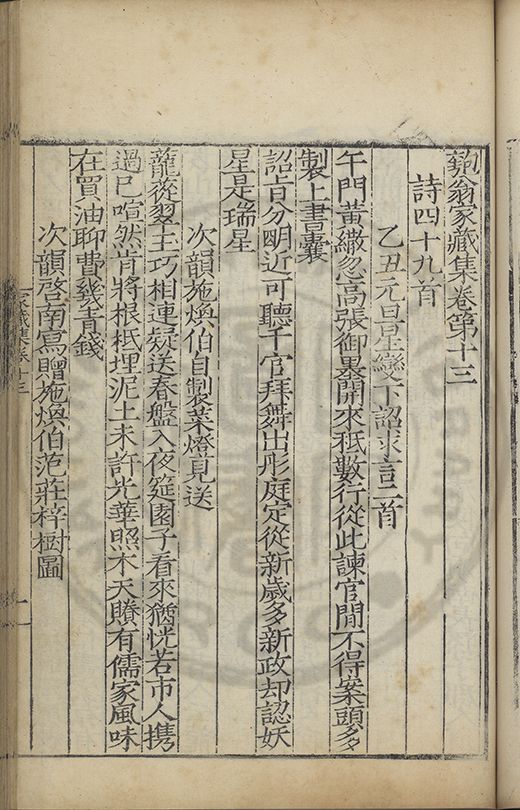 匏翁家藏集卷第十三
詩四十九首
乙丑元旦星變下詔求言二首
午門黃繖忽高張御墨開來秪數行從此諫官閒不得案頭多
製上書囊
詔旨分明近可聽千官拜舞出彤庭定從新歲多新政却認妖
星是瑞星
次韻施煥伯自製菜燈見送
蘢蓯翠玉巧相連疑送春盤入夜筵園子看來猶恍若市人携
過已喧然肯將根柢埋泥土未許光華照木天賸有儒家風味
在買油聊費幾青錢
次韻啓南寫贈施煥伯范莊梓樹圖
家藏集卷十三
一